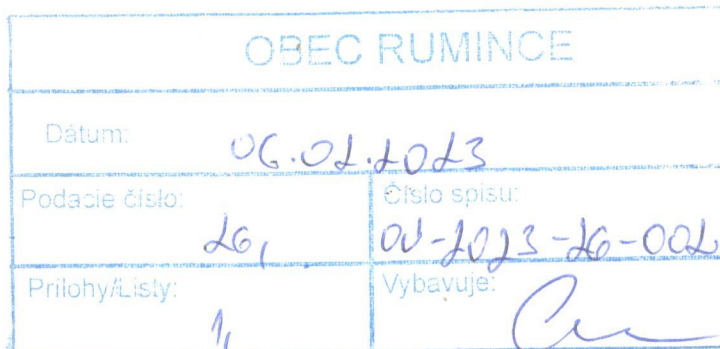 OBEC RUMINCE
Dátum: 06.02.2023
Podacie číslo:
26,
Číslo spisu:
OU-2023-26-002
Prílohy/Listy:
1,
Vybavuje: